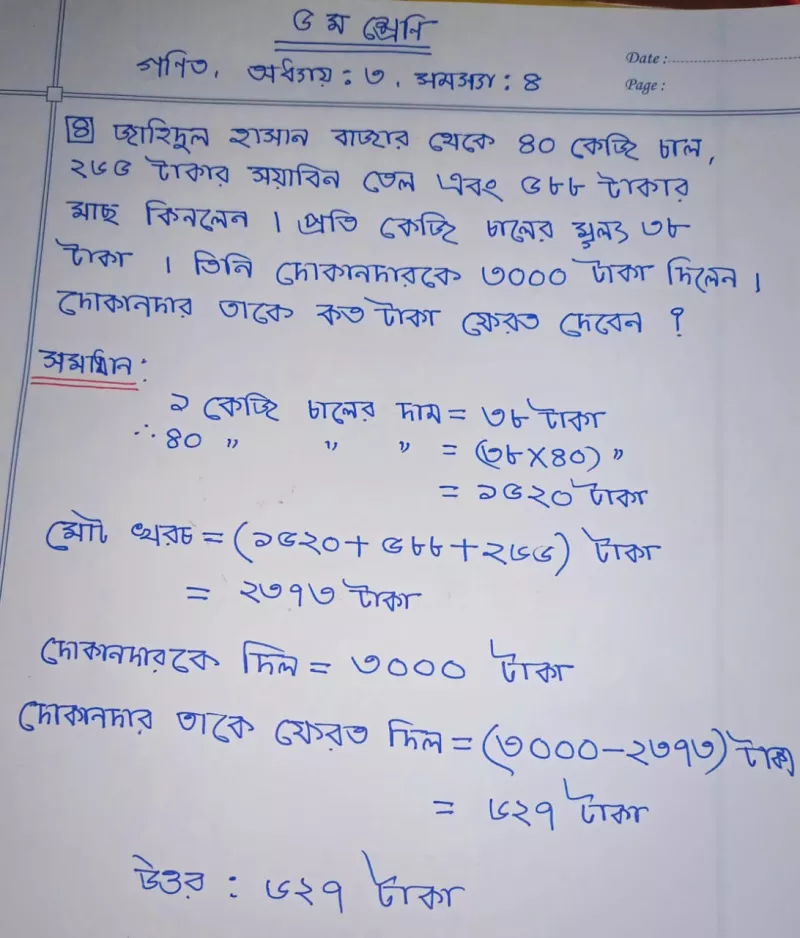 ৫ ম শ্রেণি
গণিত, অধ্যায় : ৩, সমস্যা : ৪
Date :
Page :
৪ জাহিদুল হাসান বাজার থেকে ৪০ কেজি চাল,
২৬৫ টাকার সয়াবিন তেল এবং ৫৮৮ টাকার
মাছ কিনলেন । প্রতি কেজি চালের মূল্য ৩৮
টাকা । তিনি দোকানদারকে ৩০০০ টাকা দিলেন ।
দোকানদার তাকে কত টাকা ফেরত দেবেন ?
সমাধান :
১ কেজি চালের দাম = ৩৮ টাকা
∴ ৪০ " " " = (৩৮×৪০) "
= ১৫২০ টাকা
মোট খরচ = (১৫২০ + ৫৮৮ + ২৬৫) টাকা
= ২৩৭৩ টাকা
দোকানদারকে দিল = ৩০০০ টাকা
দোকানদার তাকে ফেরত দিল = (৩০০০ – ২৩৭৩) টাকা
= ৬২৭ টাকা
উত্তর : ৬২৭ টাকা